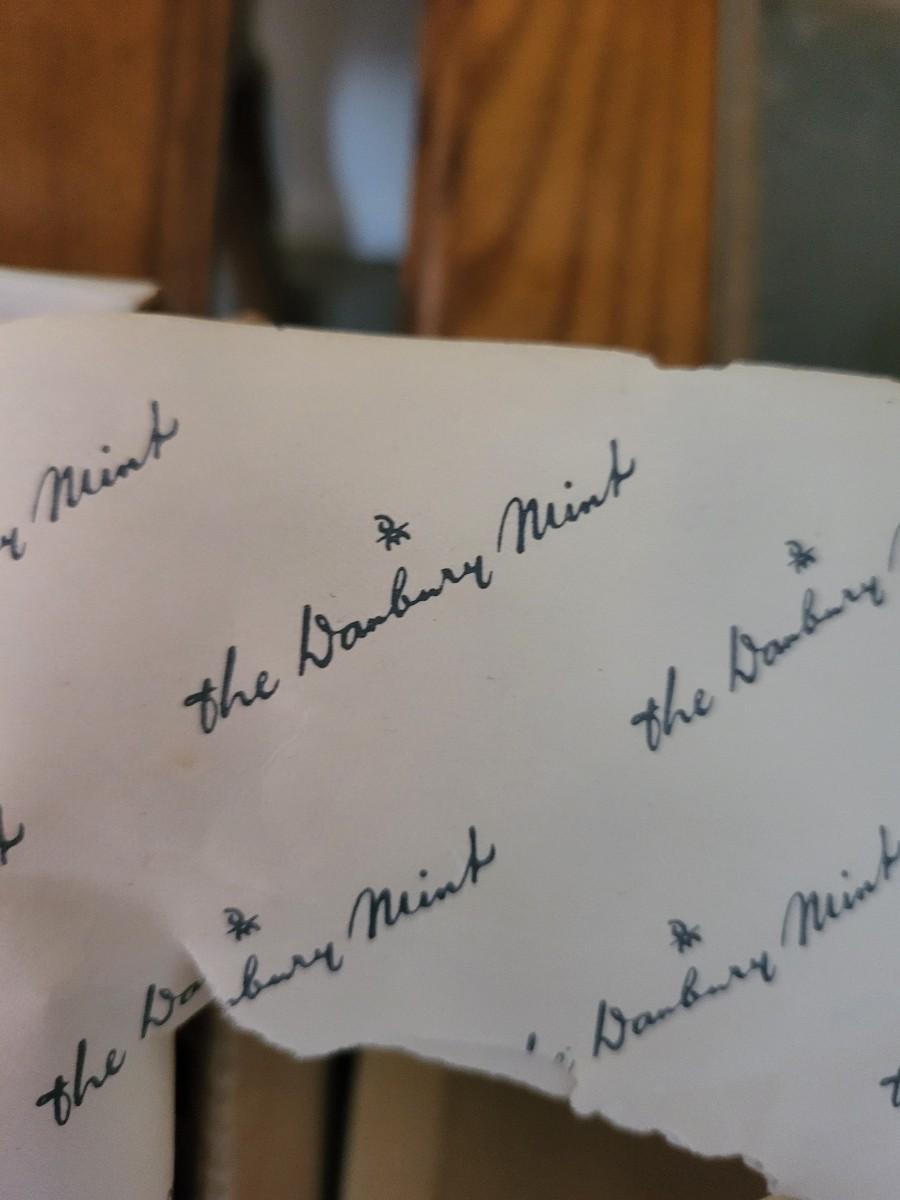 y Mint
the Danbury Mint
the Danbury
the Danbury Mint
Danbury Mint